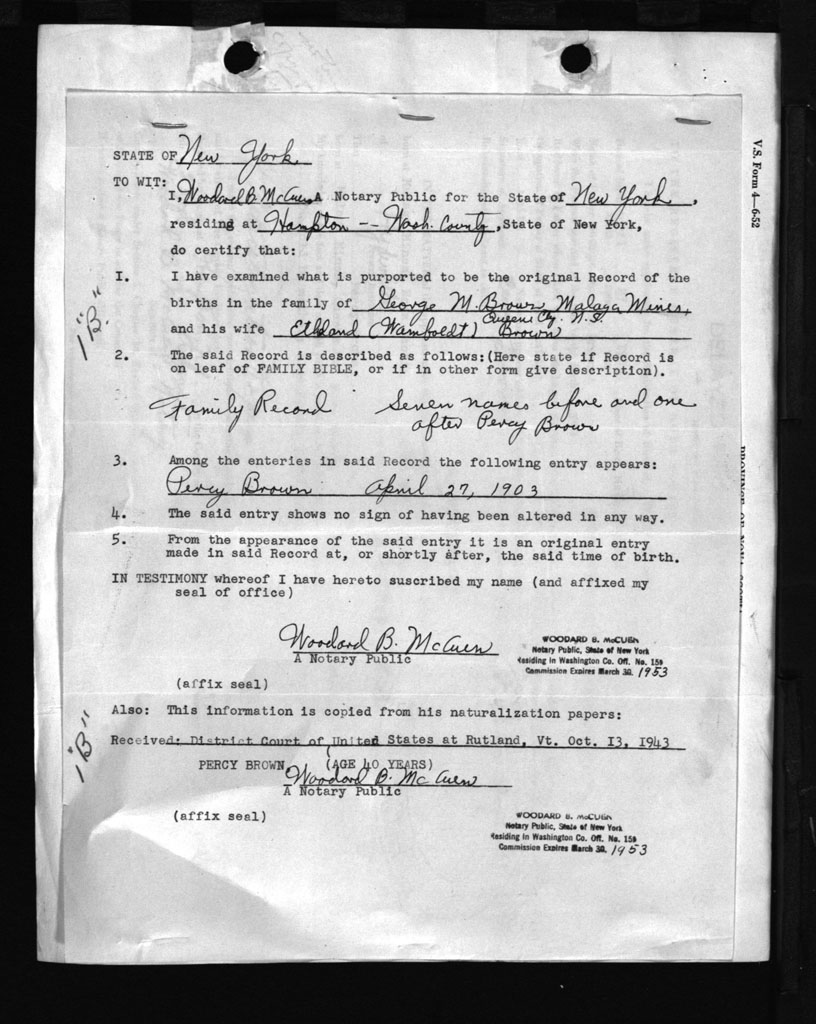 STATE OF New York
TO WIT:
I, Woodard B McCuen A Notary Public for the State of New York,
residing at Hampton -- Wash. County, State of New York,
do certify that:
I. I have examined what is purported to be the original Record of the
births in the family of George M. Brown, Malaga Mines,
Queens Cy. N.S.
and his wife Ethland (Wamboldt) Brown
2. The said Record is described as follows:(Here state if Record is
on leaf of FAMILY BIBLE, or if in other form give description).
Family Record Seven names before and one
after Percy Brown
3. Among the enteries in said Record the following entry appears:
Percy Brown April 27, 1903
4. The said entry shows no sign of having been altered in any way.
5. From the appearance of the said entry it is an original entry
made in said Record at, or shortly after, the said time of birth.
IN TESTIMONY whereof I have hereto suscribed my name (and affixed my
seal of office)
Woodard B. McCuen
A Notary Public
WOODARD B. McCUEN
Notary Public, State of New York
Residing in Washington Co. Off. No. 159
Commission Expires March 30, 1953
(affix seal)
Also: This information is copied from his naturalization papers:
Received: District Court of United States at Rutland, Vt. Oct. 13, 1943
PERCY BROWN (AGE 40 YEARS)
Woodard B. McCuen
A Notary Public
(affix seal)
WOODARD B. McCUEN
Notary Public, State of New York
Residing in Washington Co. Off. No. 159
Commission Expires March 30, 1953
"B."
"B"
V.S. Form 4—6-52